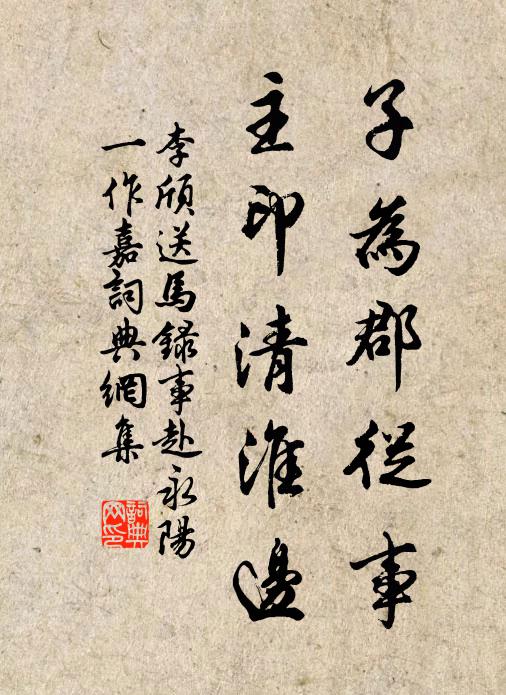 子為郡從事
主印清淮邊
李頎送馬錄事赴永陽
一作嘉詞典網集
詞典網印